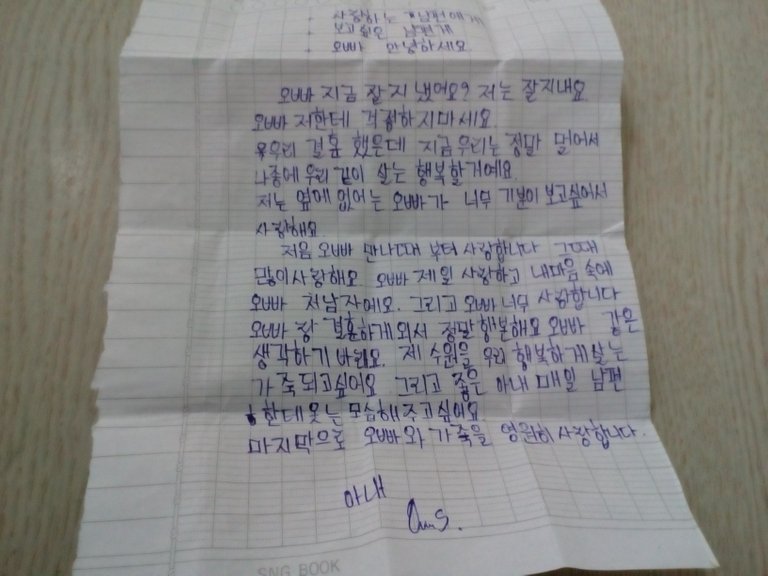 사랑하는 남편에게
보고싶은 남편게
오빠 안녕하세요
오빠 지금 잘 지 냈어요? 저는 잘지내요
오빠 저한테 걱정하지마세요
우리 결혼 했은데 지금우리는 정말 멀어서
나중에 우리 같이 살는 행복할거예요.
저는 옆에 없어는 오빠가 너무 기분이 보고싶어서
사랑해요.
저음 오빠 만나때 부터 사랑합니다 그때
많이사랑해요 오빠 제일 사랑하고 내마음 속에
오빠 처남자에요. 그리고 오빠 너무 사랑합니다
오빠 랑 결혼하게되서 정말행복해요 오빠 같은
생각하기 바래요. 제 수원을 우리 행복하게살는
가족되고싶어요 그리고 좋은 아내 매일 남편
한데웃는 모습해 주고싶어요
마지막으로 오빠와 가족을 영원히 사랑합니다.
아내
SNG BOOK